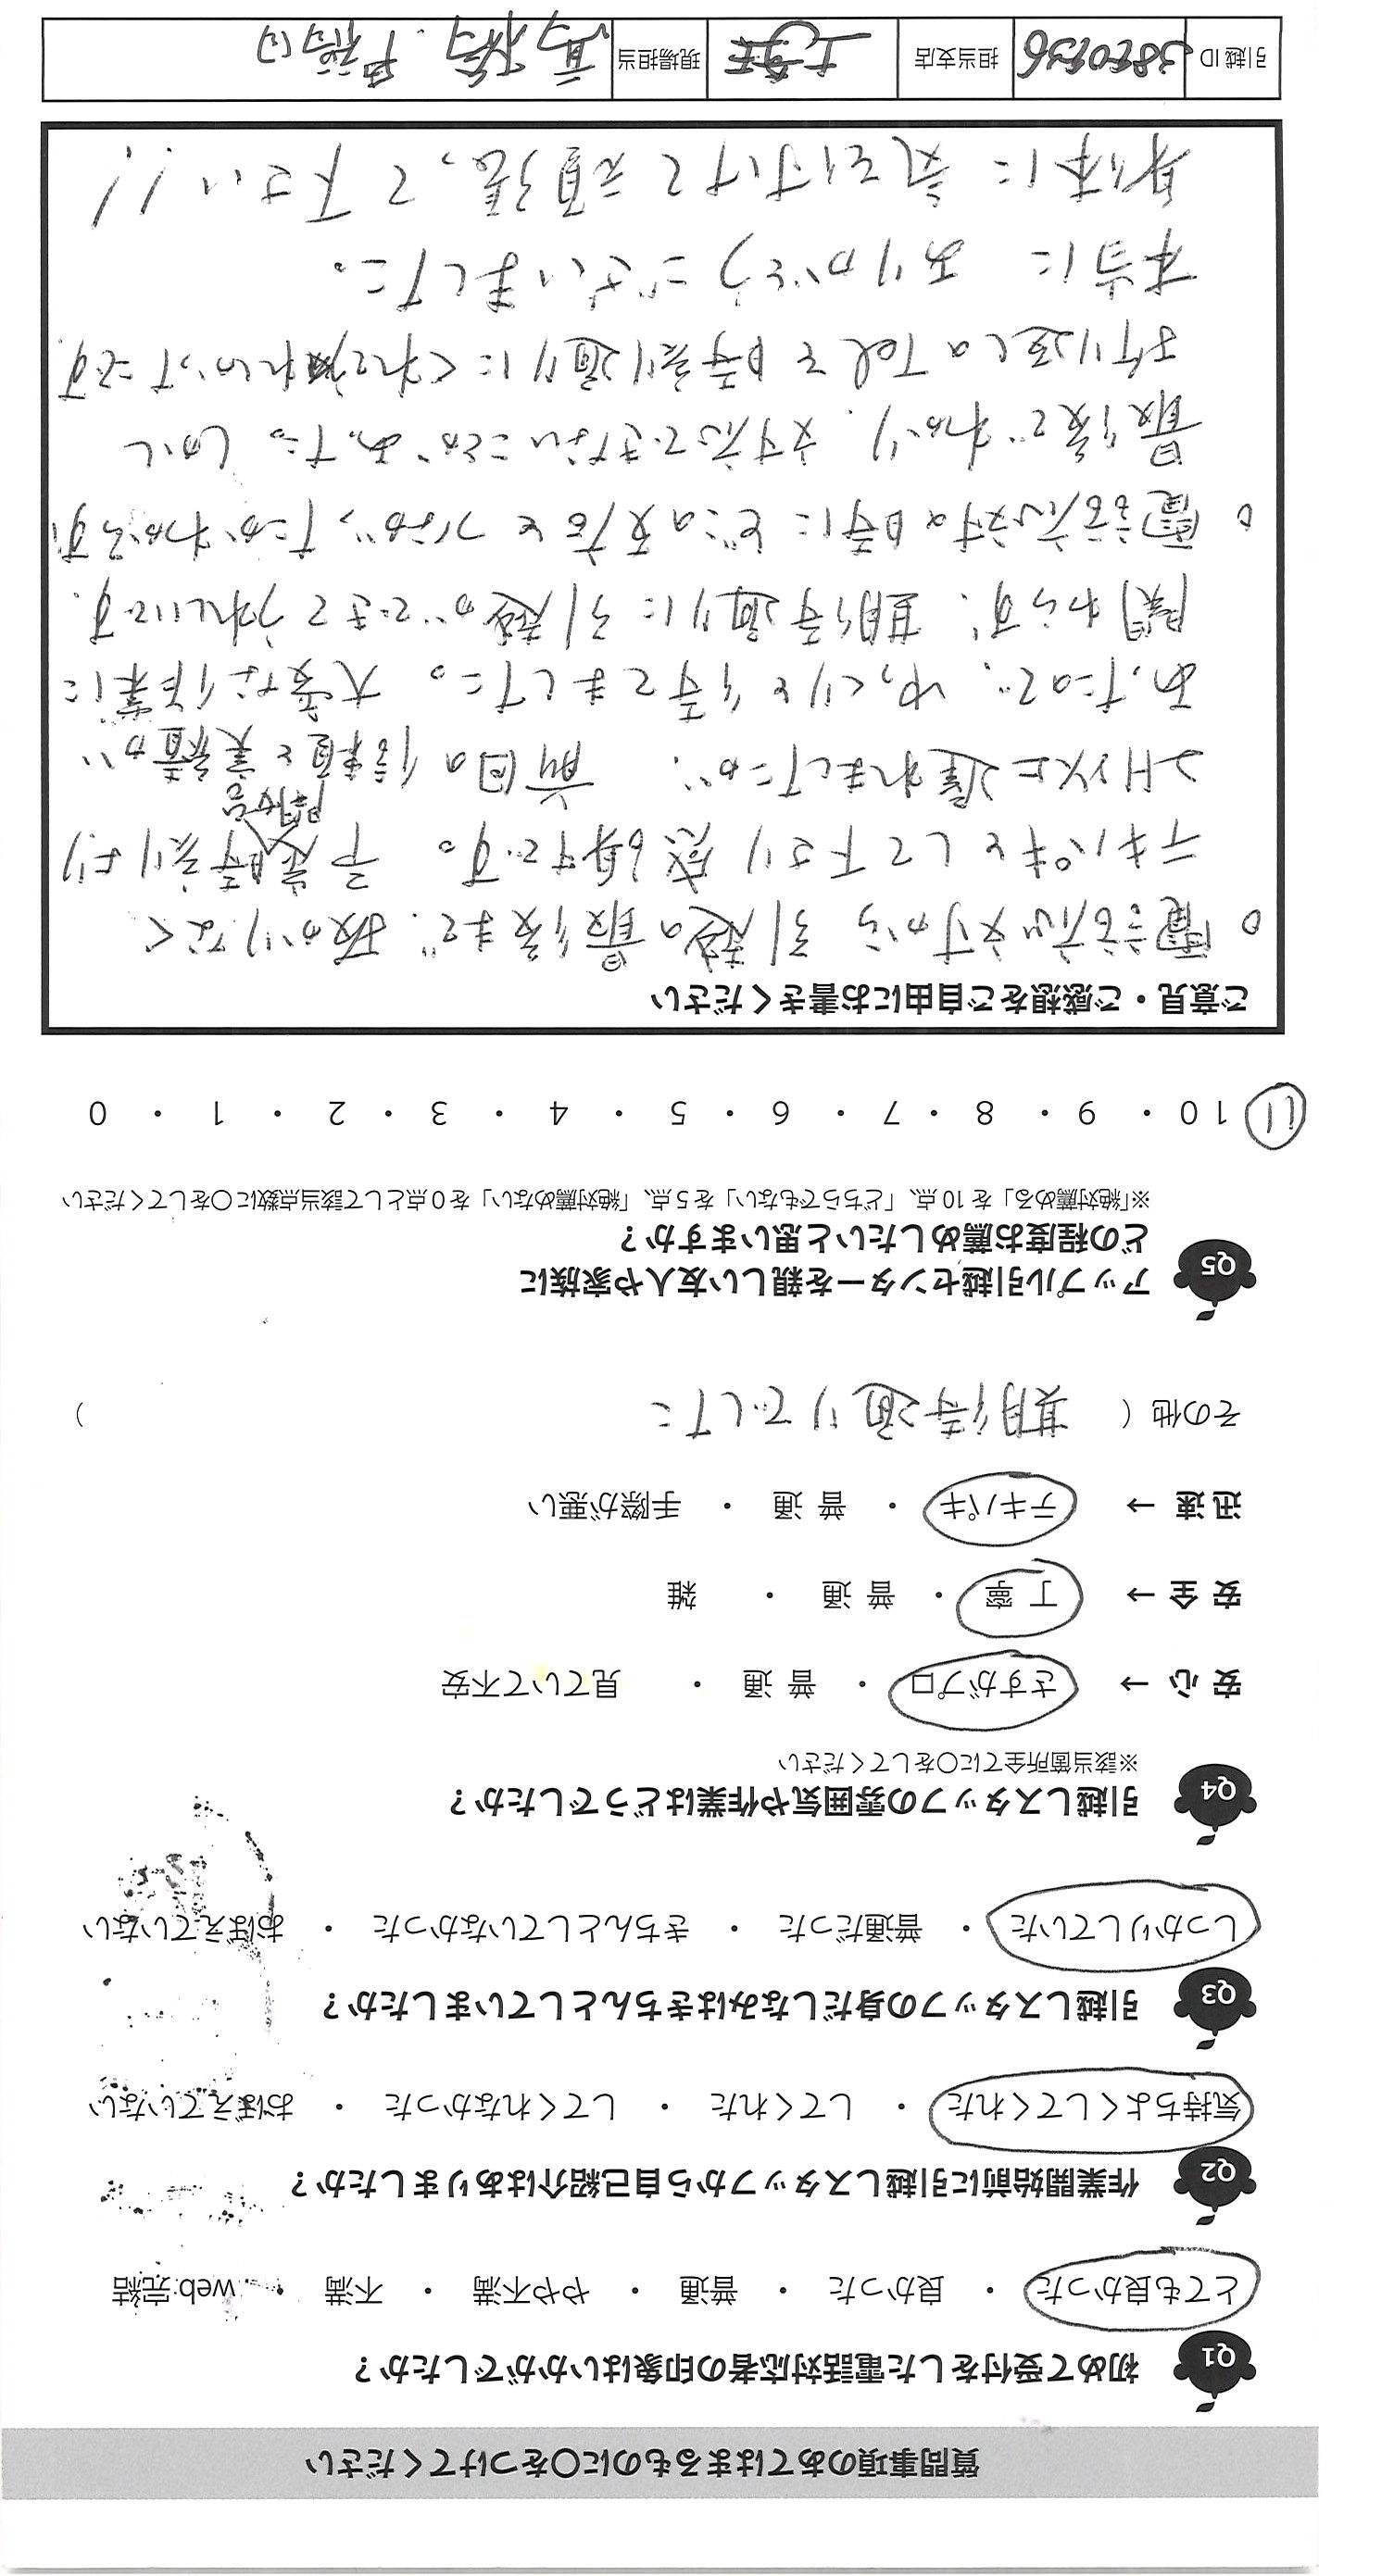 質問事項のあてはまるものに○をつけてください
Q1 初めて受付をした電話対応者の印象はいかがでしたか？
とても良かった ・ 良かった ・ 普通 ・ やや不満 ・ 不満 ・ web完結
Q2 作業開始前に引越しスタッフから自己紹介はありましたか？
気持ちよくしてくれた ・ してくれた ・ してくれなかった ・ おぼえていない
Q3 引越しスタッフの身だしなみはきちんとしていましたか？
しっかりしていた ・ 普通だった ・ きちんとしていなかった ・ おぼえていない
Q4 引越しスタッフの雰囲気や作業はどうでしたか？
※該当箇所全てに○をしてください
安心 → さすがプロ ・ 普通 ・ 見ていて不安
安全 → 丁寧 ・ 普通 ・ 雑
迅速 → テキパキ ・ 普通 ・ 手際が悪い
その他（ 期待通りでした ）
Q5 アップル引越センターを親しい友人や家族に
どの程度お薦めしたいと思いますか？
※「絶対薦める」を10点、「どちらでもない」を5点、「絶対薦めない」を0点として該当点数に○をしてください
11 10 ・ 9 ・ 8 ・ 7 ・ 6 ・ 5 ・ 4 ・ 3 ・ 2 ・ 1 ・ 0
ご意見・ご感想をご自由にお書きください
○ 電話応対から引越の最後まで、抜かりなく
テキパキとして下さり感謝です。予定時刻より
開始
2H以上遅れましたが、前回の信頼と実績が
あったので、ゆっくりと待てました。大変な作業に
関わらず、期待通りに引越ができてうれしいです。
○ 電話応対の時にどこの支店とつながったかわからず、
最後でわかり、対応できないことがあった。しかし
折り返しのTelを時刻通りにくれてうれしかったです。
本当に ありがとうございました。
身体に気を付けて頑張って下さい!!
引越ID 担当支店 現場担当 高橋.